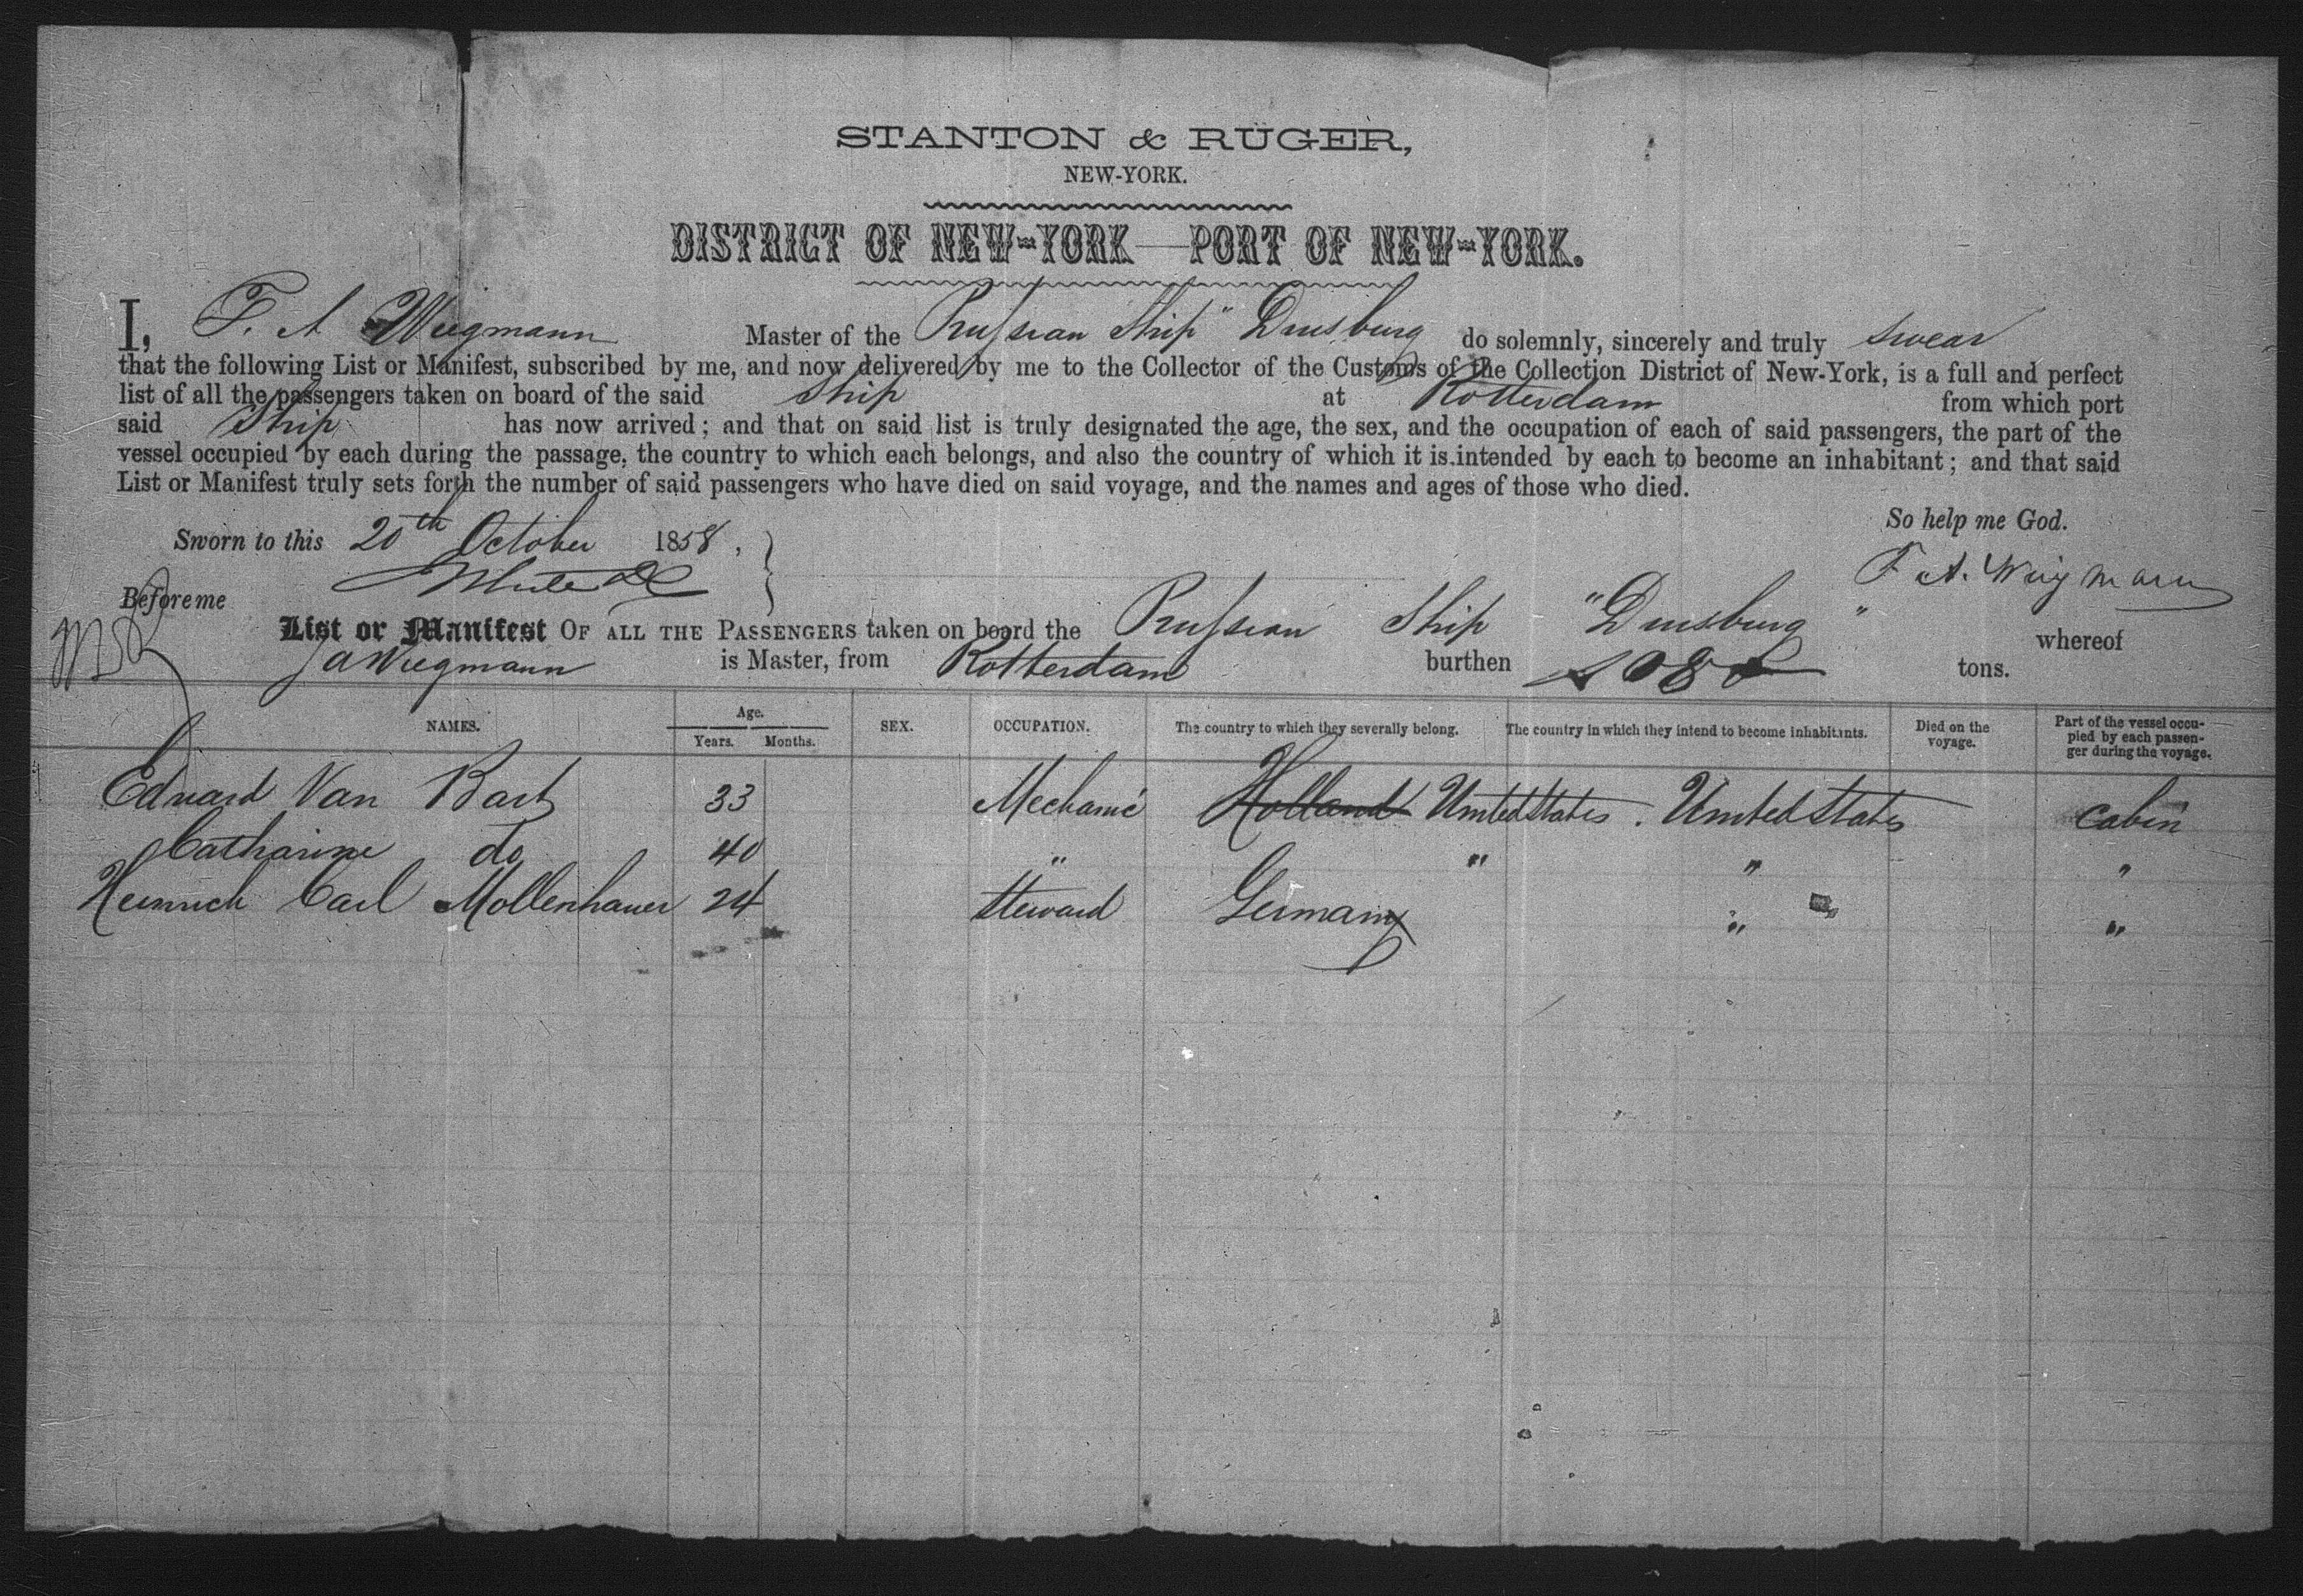 STANTON & RUGER,
NEW-YORK.
DISTRICT OF NEW-YORK—PORT OF NEW-YORK.
I, F. A Wiegmann Master of the Prussian Ship "Duisburg do solemnly, sincerely and truly swear
that the following List or Manifest, subscribed by me, and now delivered by me to the Collector of the Customs of the Collection District of New-York, is a full and perfect
list of all the passengers taken on board of the said Ship at Rotterdam from which port
said Ship has now arrived; and that on said list is truly designated the age, the sex, and the occupation of each of said passengers, the part of the
vessel occupied by each during the passage, the country to which each belongs, and also the country of which it is intended by each to become an inhabitant; and that said
List or Manifest truly sets forth the number of said passengers who have died on said voyage, and the names and ages of those who died.
So help me God.
Sworn to this 20th October 1858.
F. A. Wiegmann
Before me
List or Manifest OF ALL THE PASSENGERS taken on board the Prussian Ship "Duisburg" whereof
Wiegmann is Master, from Rotterdam burthen tons.
NAMES. Age. Years. Months. SEX. OCCUPATION. The country to which they severally belong. The country in which they intend to become inhabitants. Died on the voyage. Part of the vessel occupied by each passenger during the voyage.
Eduard Van Bart 33 Mechanic Holland United States. United States cabin
Catharine do 40 " " " "
Heinrich Carl Mollenhauer 24 Steward Germany " "